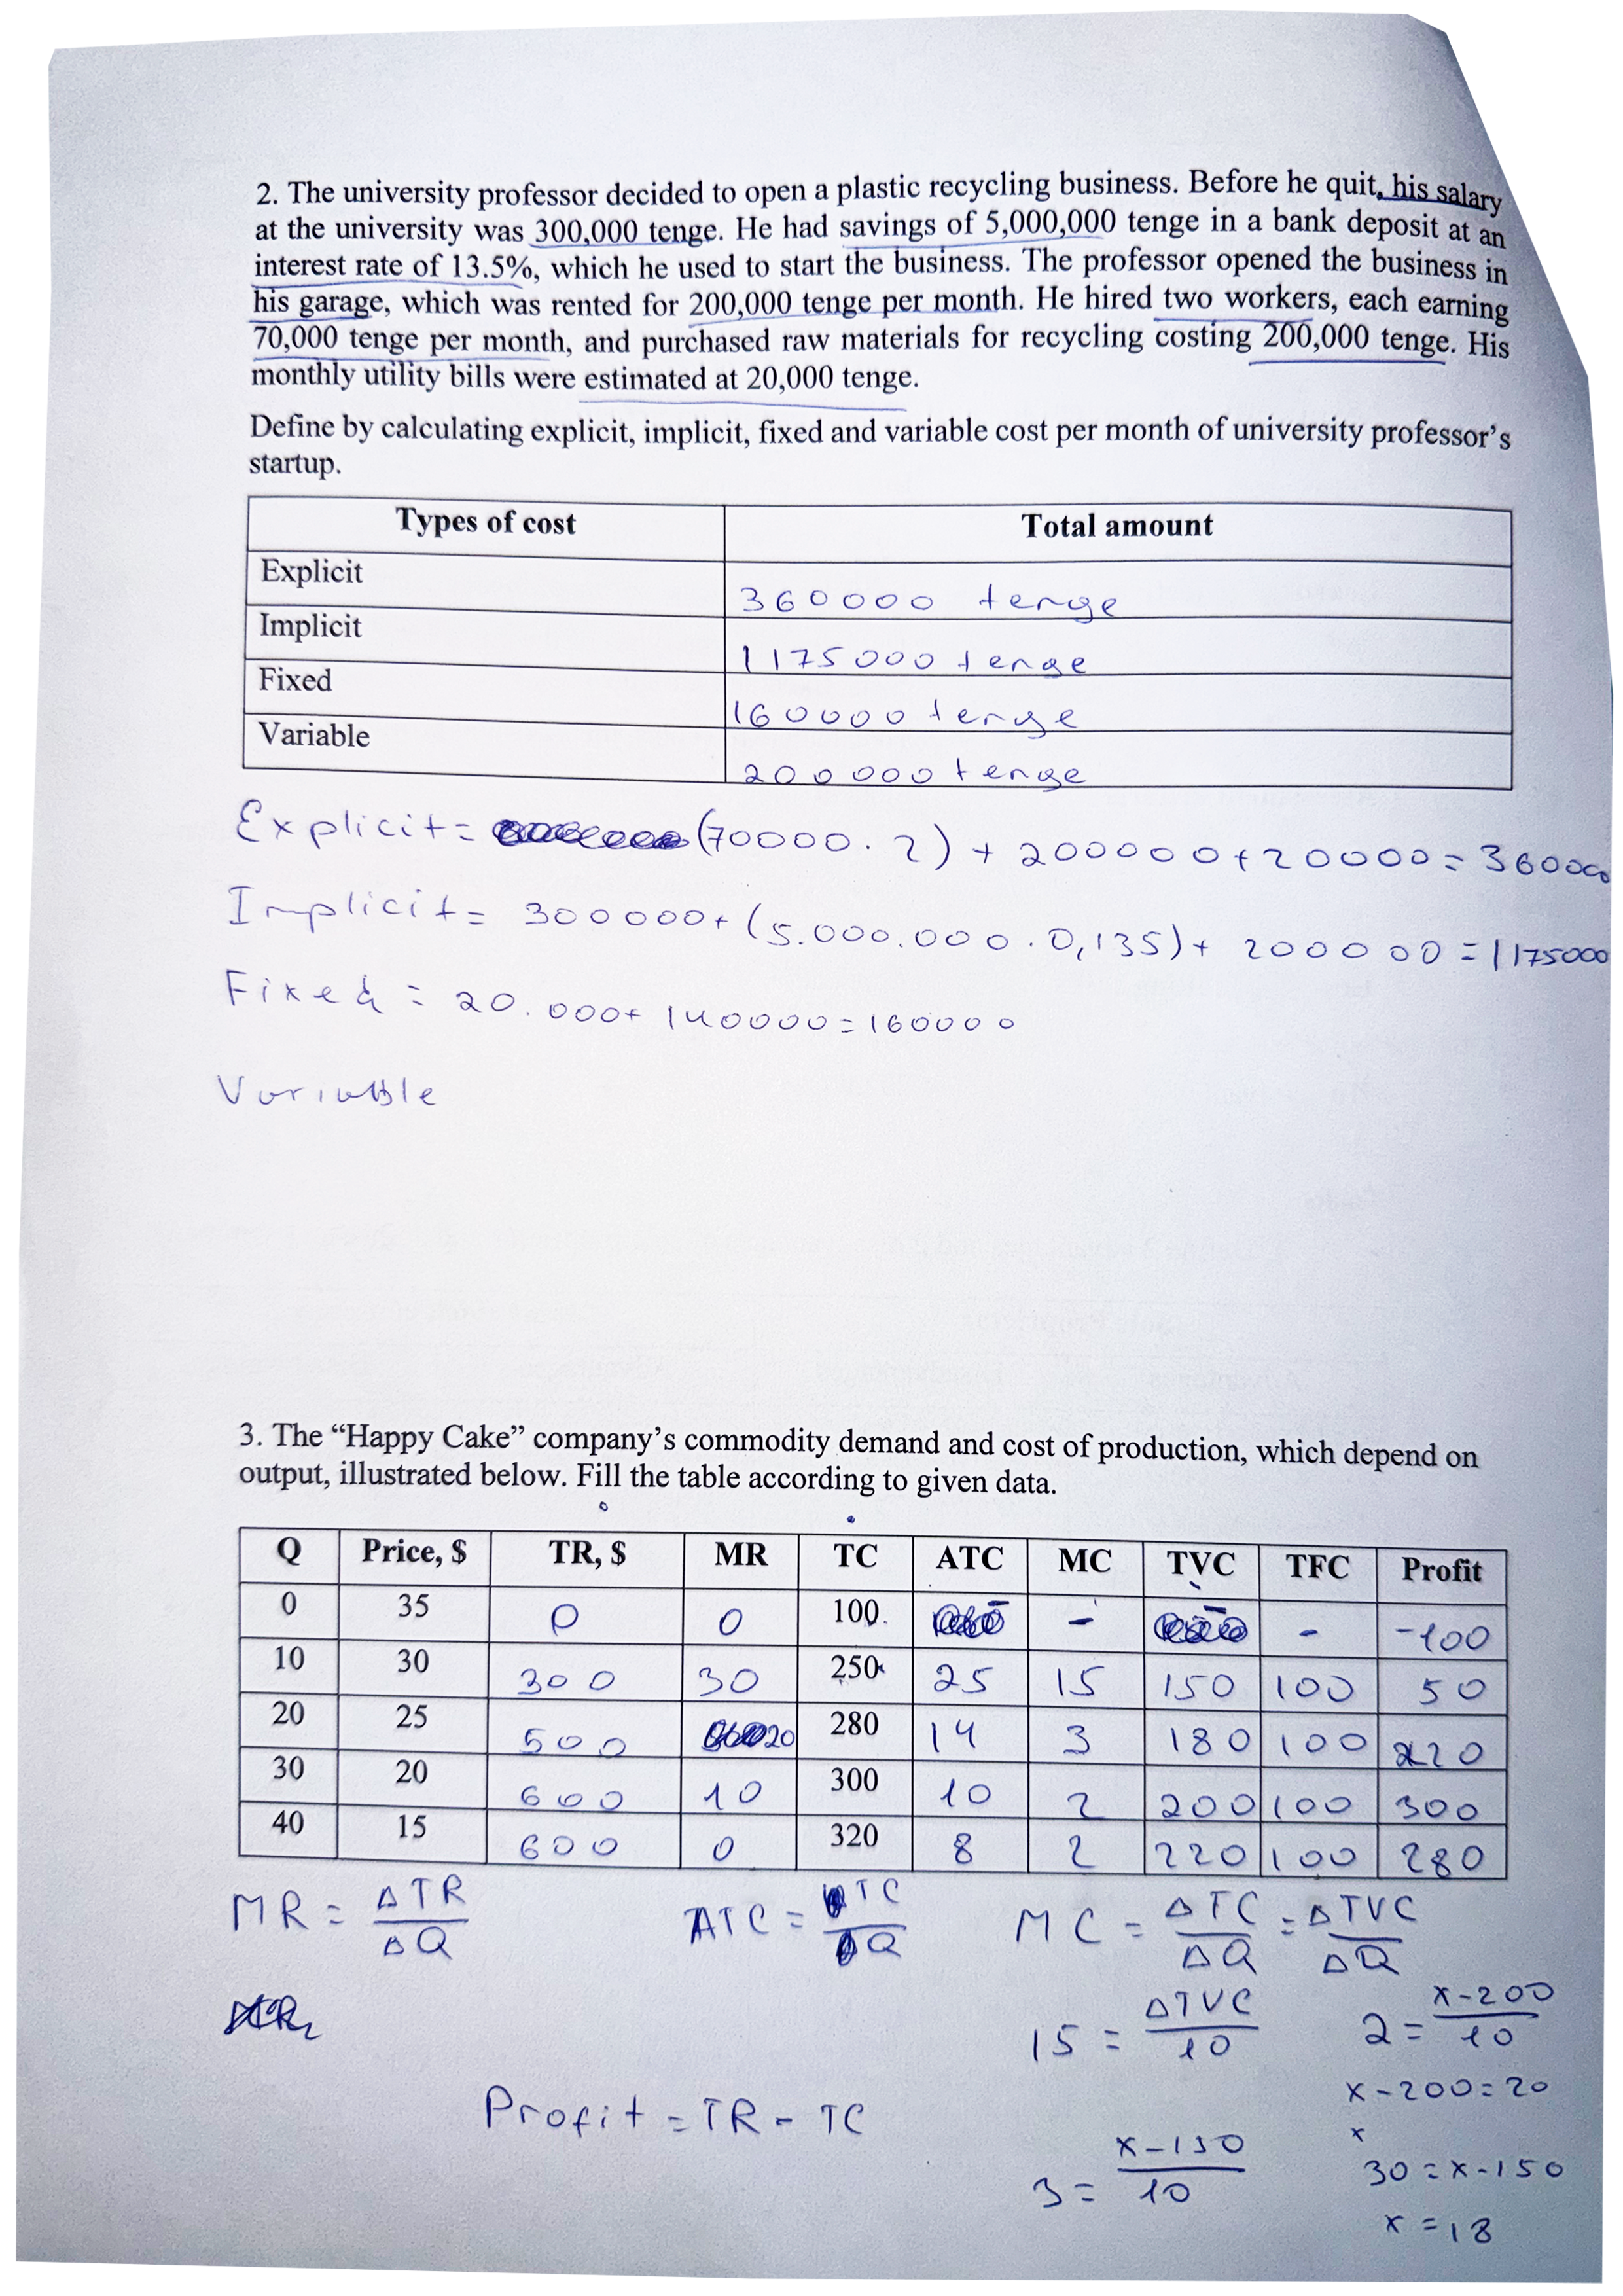 2. The university professor decided to open a plastic recycling business. Before he quit, his salary
at the university was 300,000 tenge. He had savings of 5,000,000 tenge in a bank deposit at an
interest rate of 13.5%, which he used to start the business. The professor opened the business in
his garage, which was rented for 200,000 tenge per month. He hired two workers, each earning
70,000 tenge per month, and purchased raw materials for recycling costing 200,000 tenge. His
monthly utility bills were estimated at 20,000 tenge.
Define by calculating explicit, implicit, fixed and variable cost per month of university professor's
startup.
Types of cost Total amount
Explicit 360000 tenge
Implicit 1175000 tenge
Fixed 160000 tenge
Variable 200000 tenge
Explicit = (70000 · 2) + 200000 + 20000 = 360000
Implicit = 300000 + (5.000.000 · 0,135) + 200000 = 1175000
Fixed = 20.000 + 140000 = 160000
Variable
3. The “Happy Cake” company's commodity demand and cost of production, which depend on
output, illustrated below. Fill the table according to given data.
Q Price, $ TR, $ MR TC ATC MC TVC TFC Profit
0 35 0 0 100 - - - - -100
10 30 300 30 250 25 15 150 100 50
20 25 500 20 280 14 3 180 100 220
30 20 600 10 300 10 2 200 100 300
40 15 600 0 320 8 2 220 100 280
MR = ΔTR / ΔQ ATC = TC / Q MC = ΔTC / ΔQ = ΔTVC / ΔQ
15 = ΔTVC / 10 2 = x - 200 / 10
x - 200 = 20
Profit = TR - TC
x
3 = x - 150 / 10 30 = x - 150
x = 18